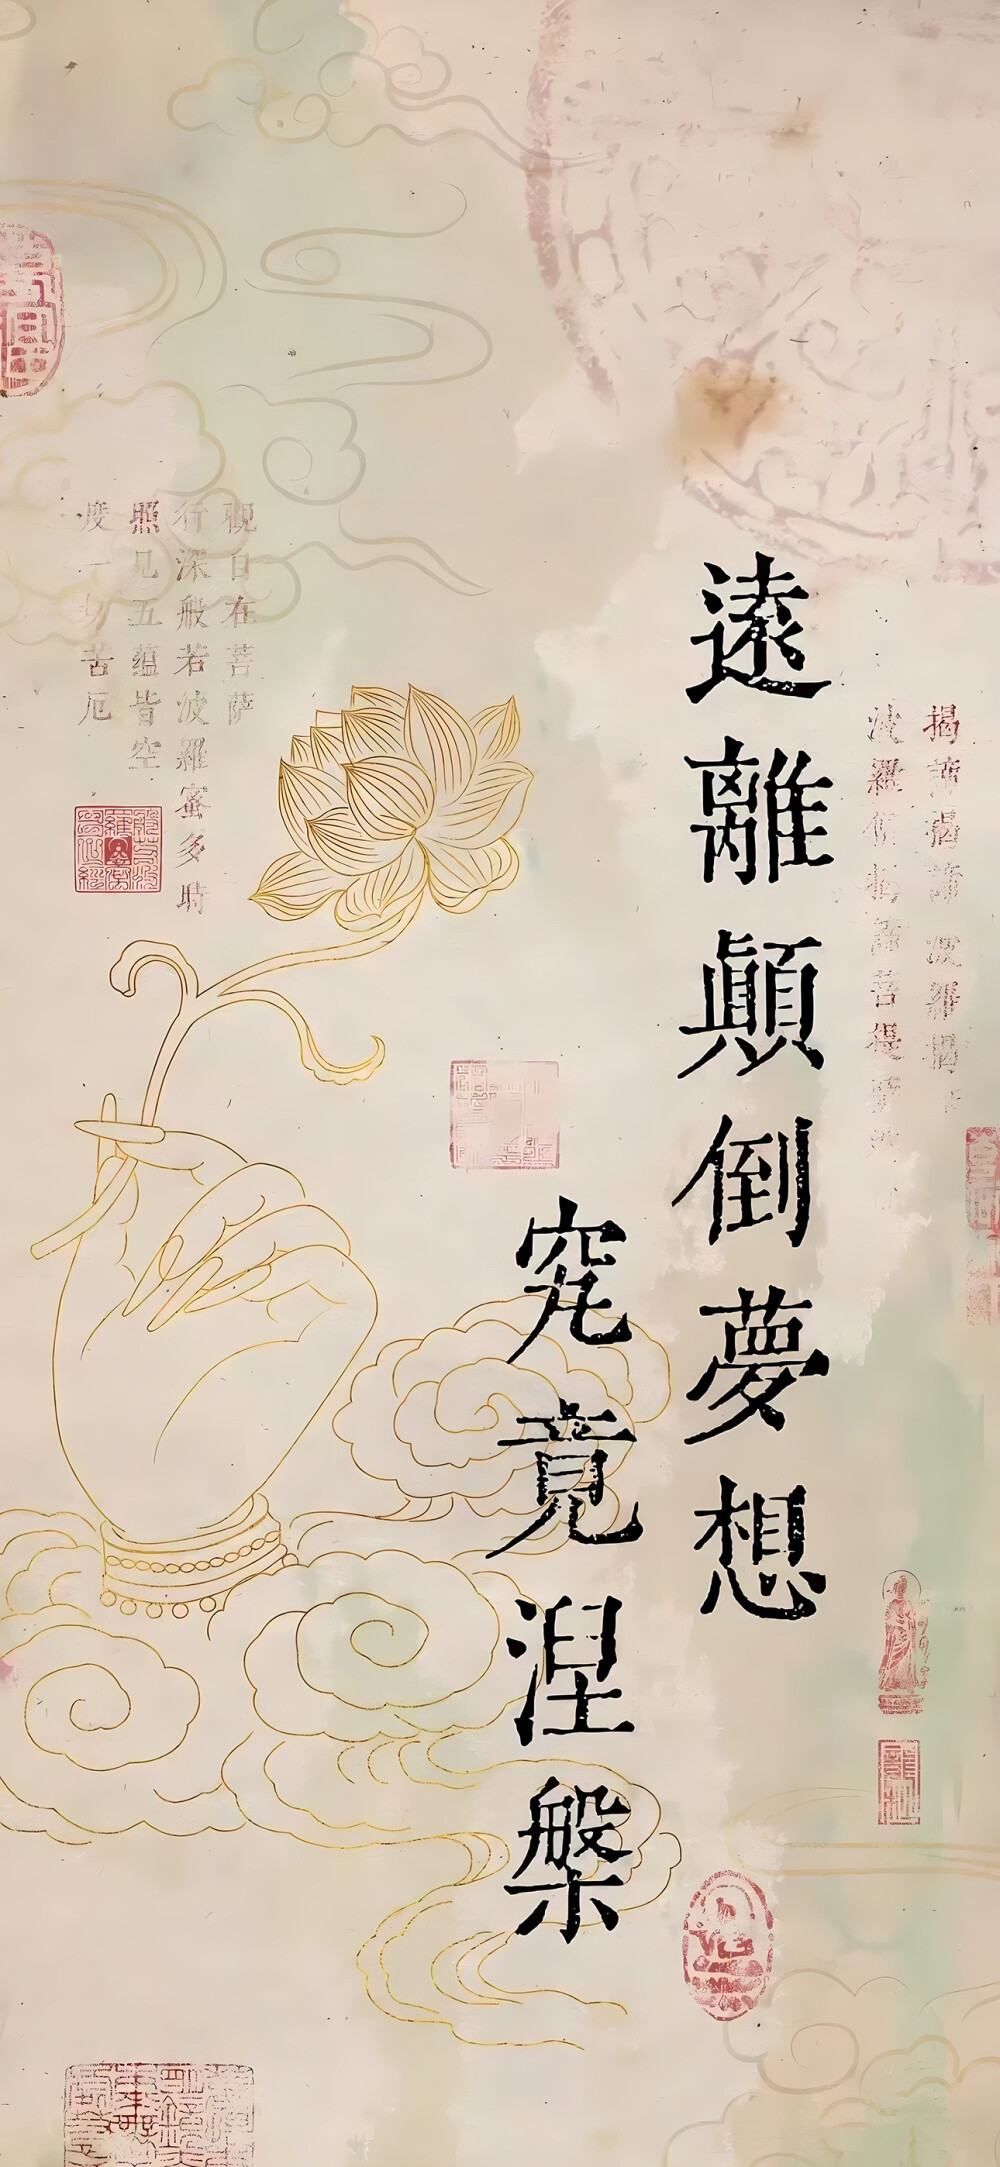 揭諦揭諦 波羅揭
波羅僧揭諦菩提
遠離顛倒夢想
究竟涅槃
觀自在菩薩
行深般若波羅蜜多時
照見五蘊皆空
度一切苦厄